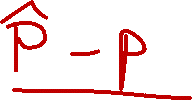 p̂ - p